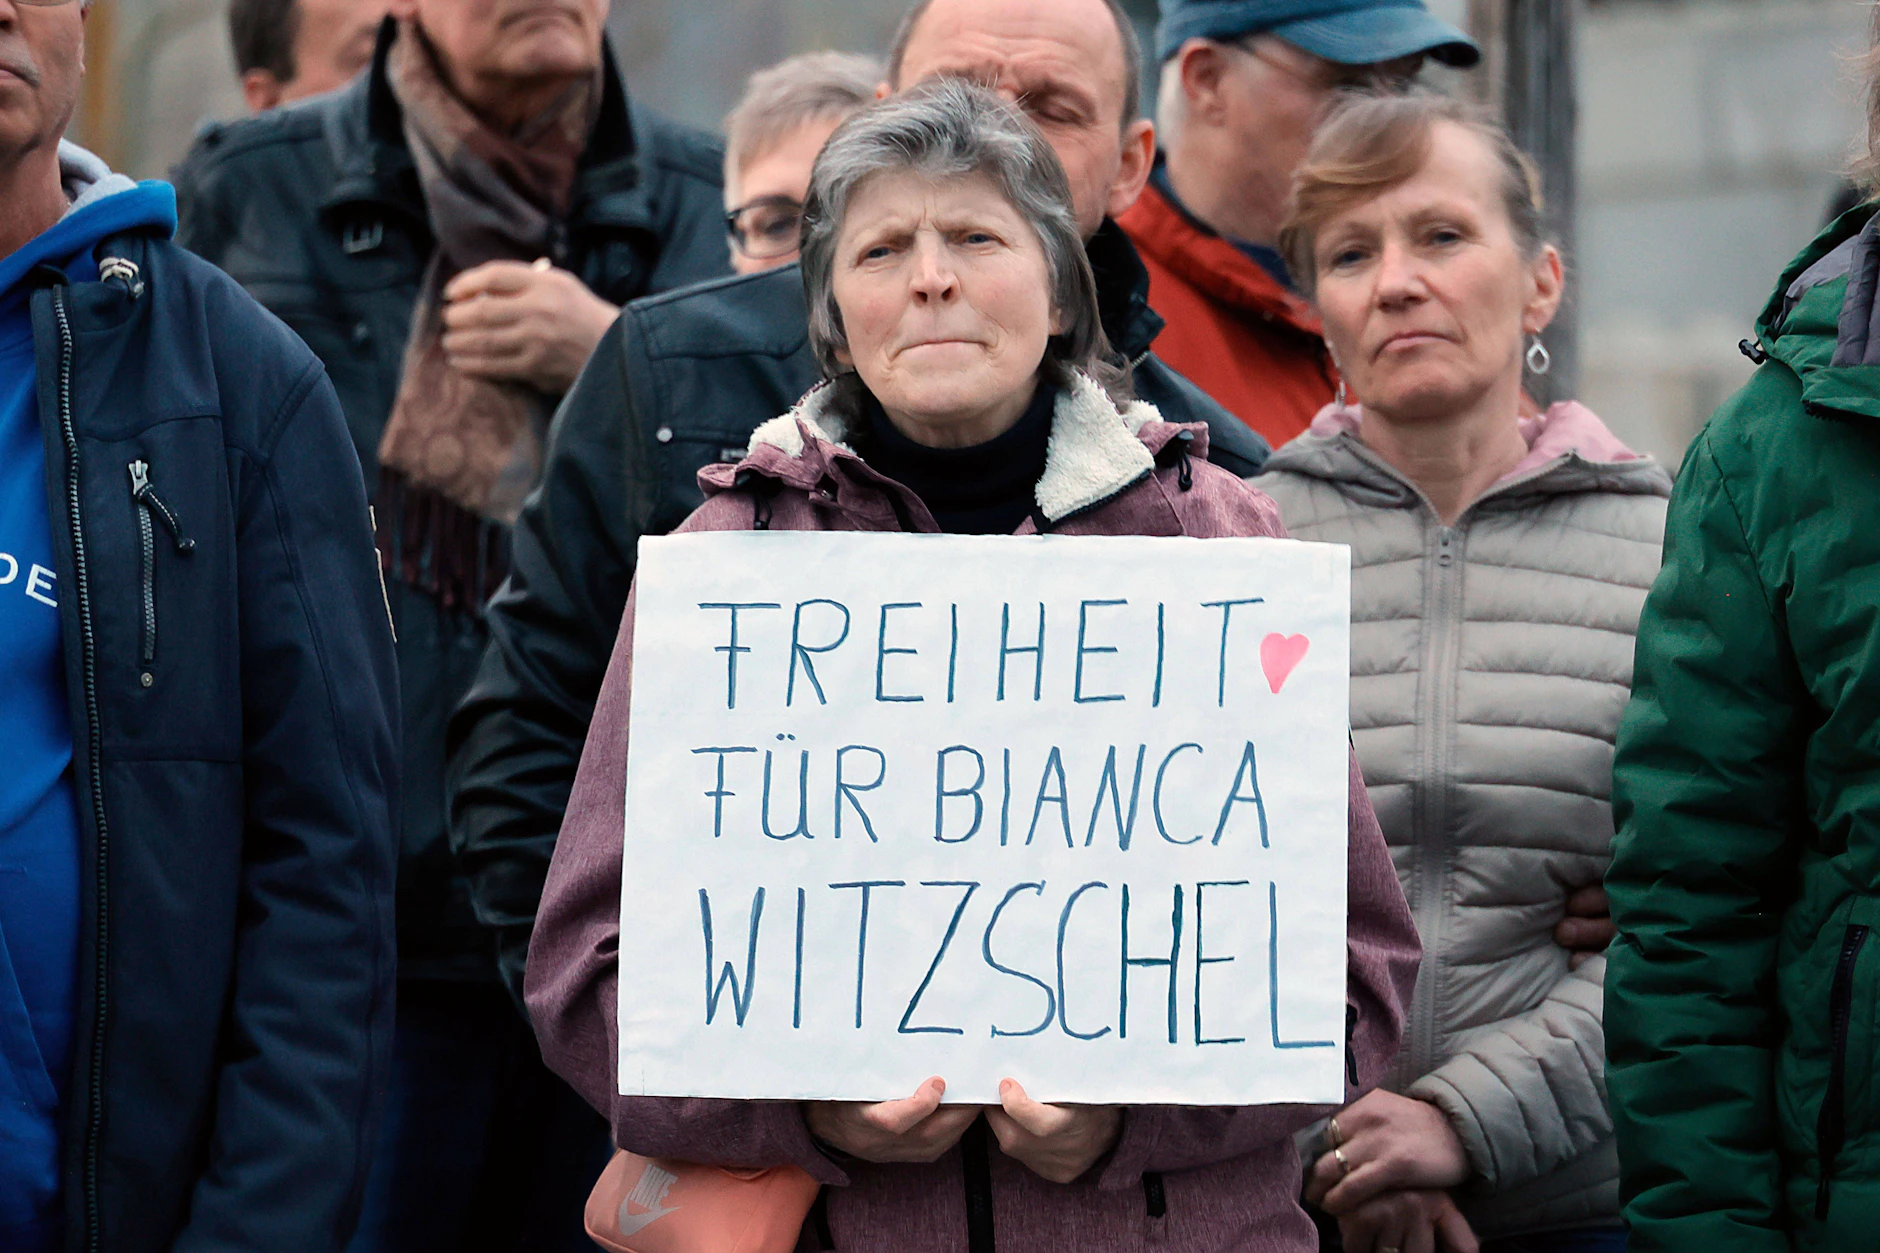 FREIHEIT
FÜR BIANCA
WITZSCHEL
DE
NIKE